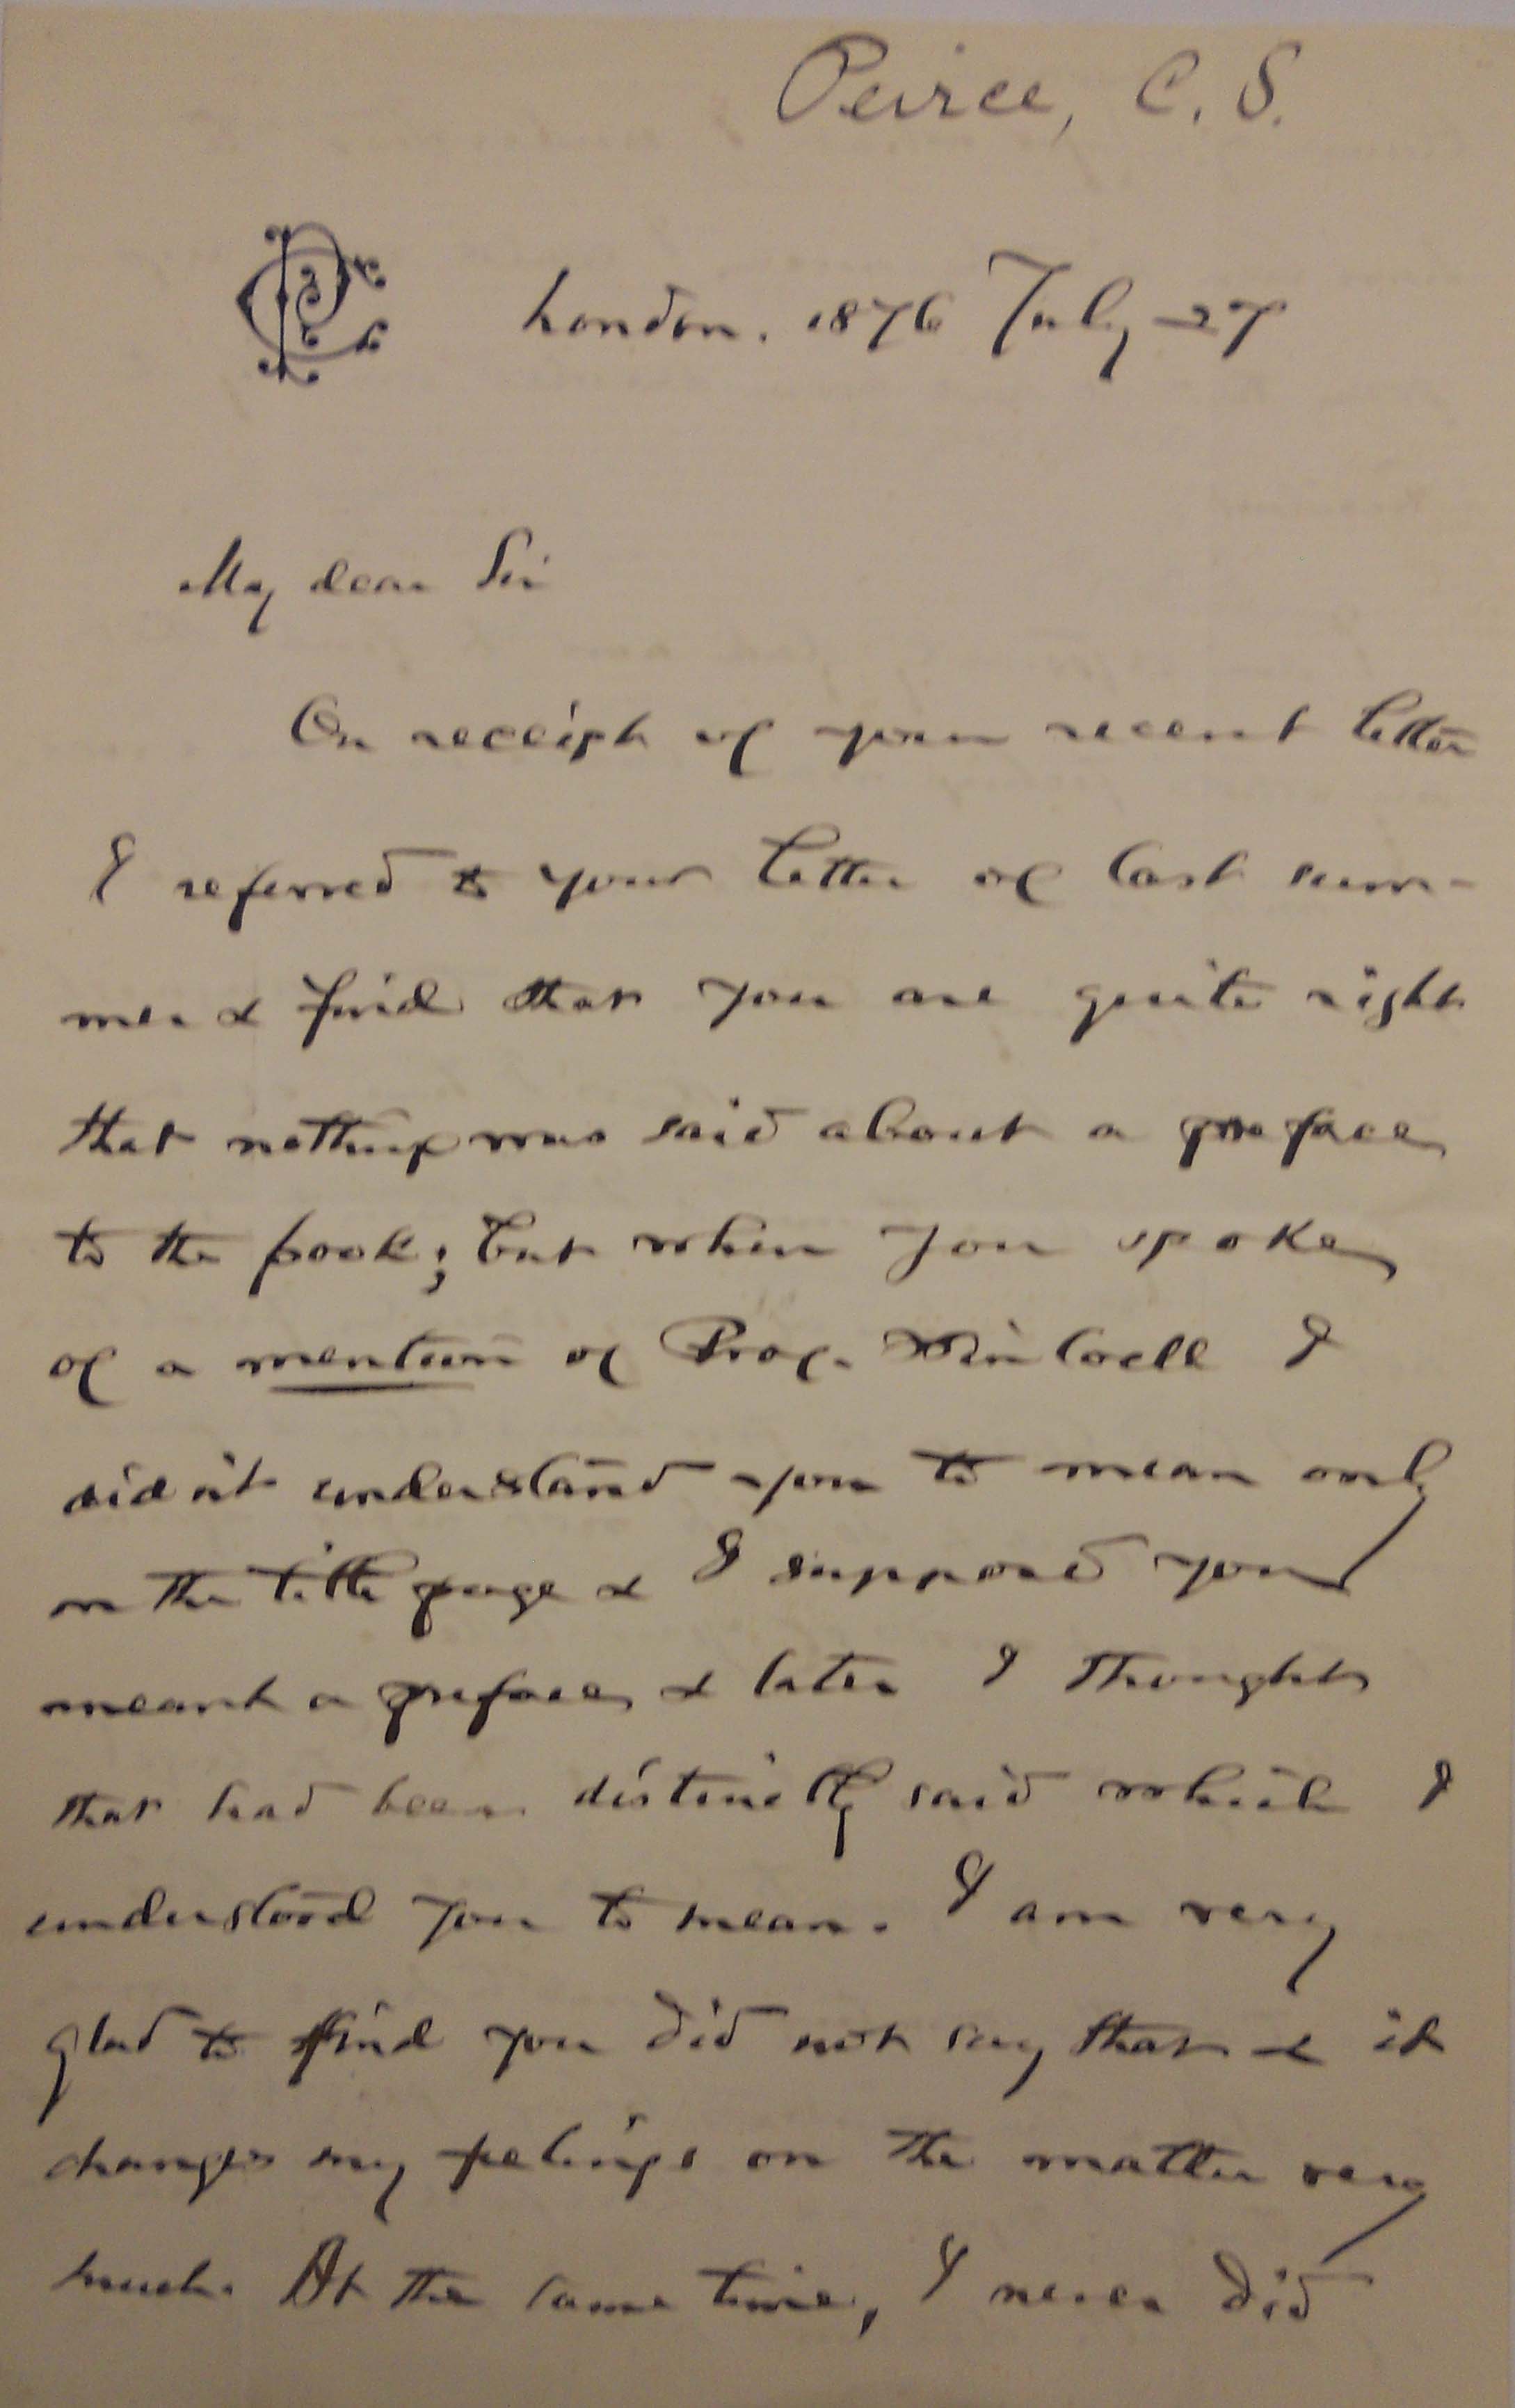 Peirce, C. S.
London. 1876 July 27
My dear Sir
On receipt of your recent letter
I referred to your letter of last sum-
mer & find that you are quite right
that nothing was said about a preface
to the book; but when you spoke
of a mention of Prof. Winlock I
didn't understand you to mean only
on the title page & I supposed you
meant a preface & later I thought
that had been distinctly said which I
understood you to mean. I am very
glad to find you did not say that & it
changes my feelings on the matter very
much. At the same time, I never did